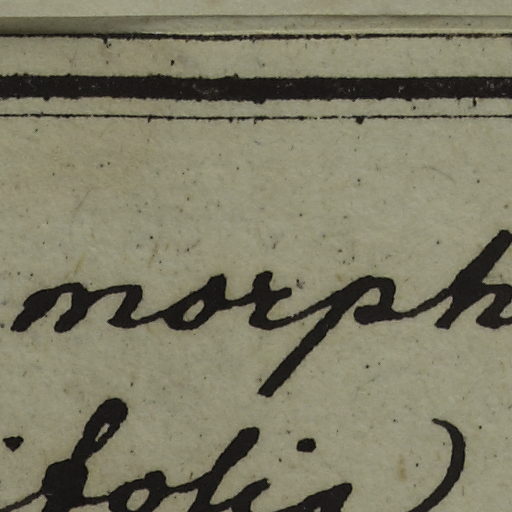 morph
ifolia)